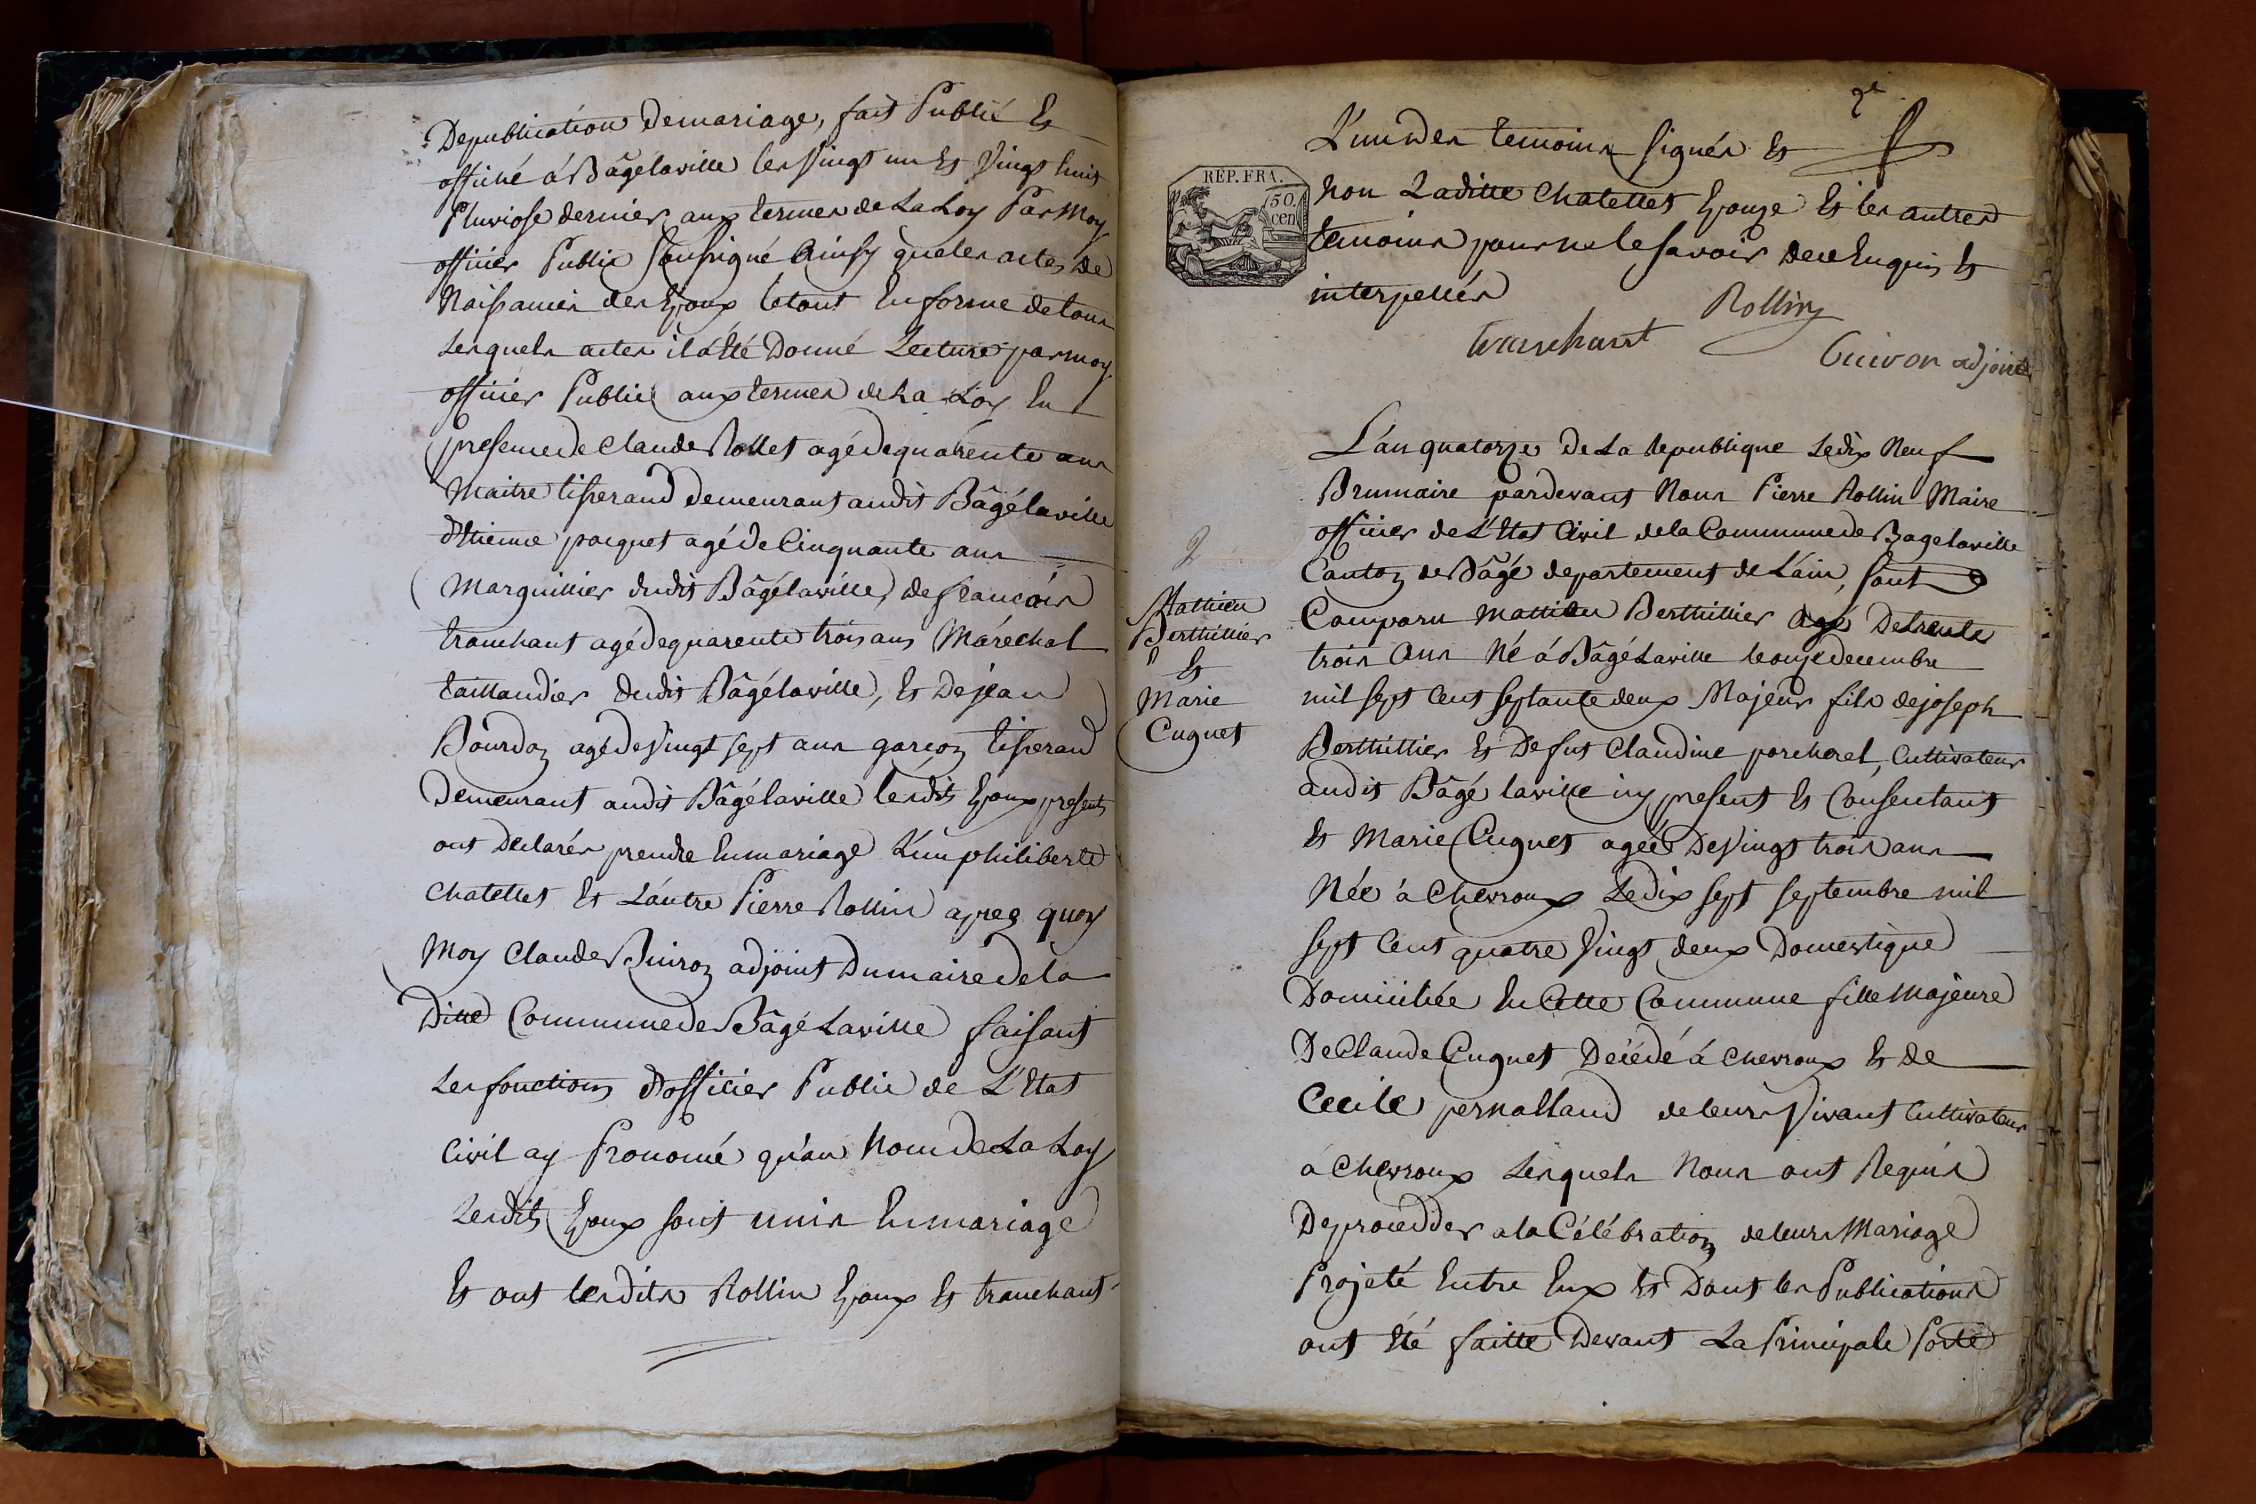 Depublication demariage, fait Publié Et
affiché á Bâgélaville les Vingt un Et Vingt huit
Pluviose dernier aux termes de La Loy Par Moy
officier Public soussigné Ainsy queles actes de
Naissances des Epoux letout En forme detous
Lesquels actes il á Eté Donné Lecture parmoy
officier Public aux termes de La Loy En
presence de Claude Rollet agé dequarente ans
Maitre tisserand demeurant audit Bâgélaville
d'Etienne pacquet agé de Cinquante ans
Marguillier dudit Bâgélaville, de francois
tranchant agé dequarente trois ans Maréchal
taillandier dudit Bâgélaville, Et De jean
Bourdon agé de Vingt sept ans garçon tisserand
Demeurant audit Bâgélaville lesdits Epoux presents
ont Declarés prendre Enmariage L'un philiberte
Chatellet Et L'autre Pierre Rollin aprez quoy
Moy Claude Guiron adjoint Dumaire de la
Ditte Commune de Bâgé Laville faisant
Les fonctions d'officier Public de L'Etat
Civil ay Prononcé qu'au Nom de La Loy
Lesdits Epoux sont unis En mariage
Et ont lesdits Rollin Epoux Et tranchant
2e
L'un des temoins signés Et
REP. FRA.
50 cen
Non Laditte Chatellet Epouze Et les autres
temoins pour ne le savoir de ce Enquis Et
interpellés
Rollin
tranchant
Guiron adjoint
L'an quatorze De La Republique Le dix Neuf
Brumaire pardevant Nous Pierre Rollin Maire
officier de L'Etat Civil dela Commune de Bagelaville
Canton de Bâgé departement de L'ain, sont
Comparu Mathieu Berthillier Agé De trente
trois Ans Né á Bâgé Laville le onze decembre
mil sept Cent septante deux Majeur fils de joseph
Berthillier Et De fut Claudine porcherel, Cultivateur
audit Bâgé laville icy present Et Consentant
Et Marie Cuguet agée De Vingt trois ans
Née à Chevroux Le dix sept septembre mil
sept Cent quatre Vingt deux Domestique
Domiciliée En Cette Commune fille Majeure
De Claude Cuguet Décédé á Chevroux Et de
Cecile pernalland de leurs Vivant Cultivateur
á Chevroux Lesquels Nous ont Requis
De procedder a la Célébration de leurs Mariage
Projeté Entre Eux Et Dont les Publications
ont Eté faitte Devant La Principale Porte
2
Mathieu
Berthillier
Et
Marie
Cuguet